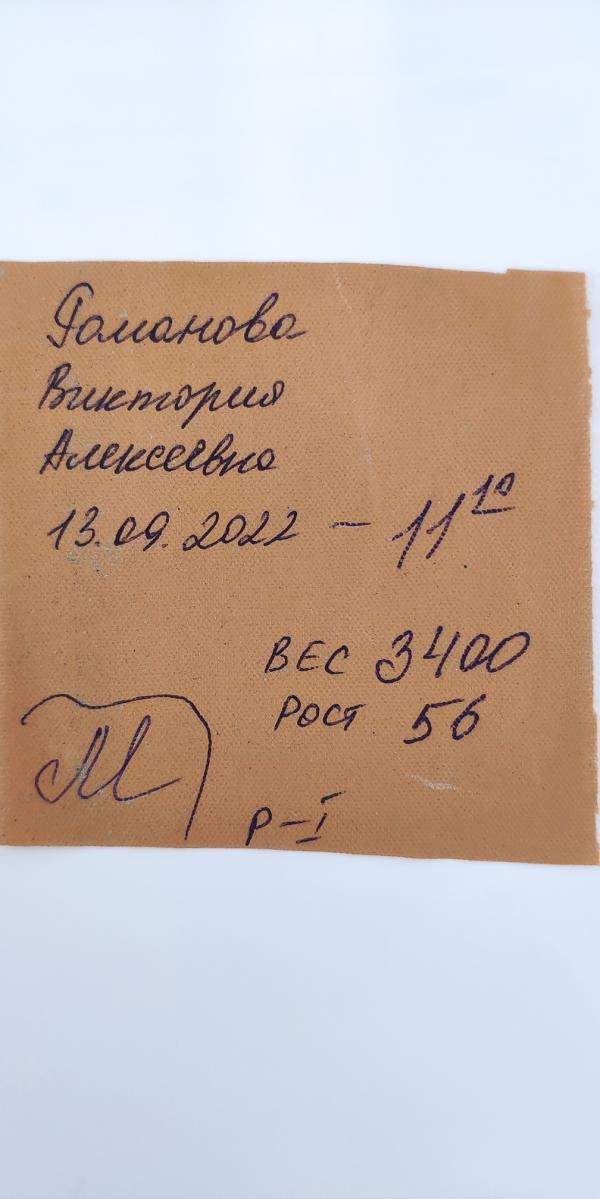 Романова
Виктория
Алексеевна
13.09.2022 – 11 10
ВЕС 3400
Рост 56
М
Р–I